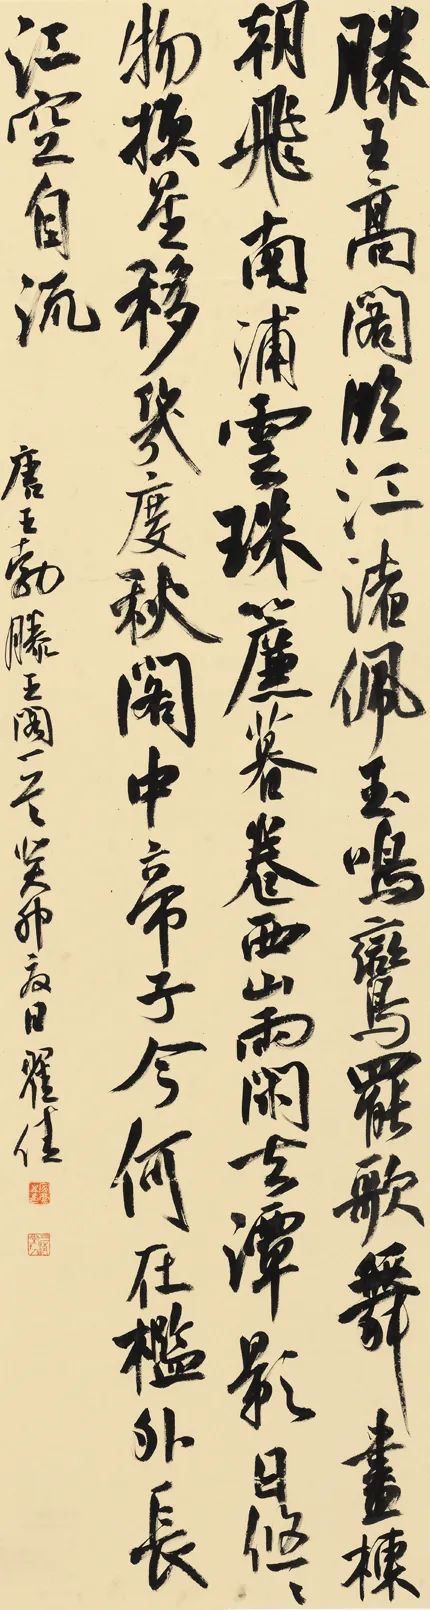 滕王高閣臨江渚佩玉鳴鸞罷歌舞畫棟
朝飛南浦雲珠簾暮卷西山雨閑云潭影日悠〻
物換星移幾度秋閣中帝子今何在檻外長
江空自流
唐王勃滕王閣一首癸卯夏日翟佳